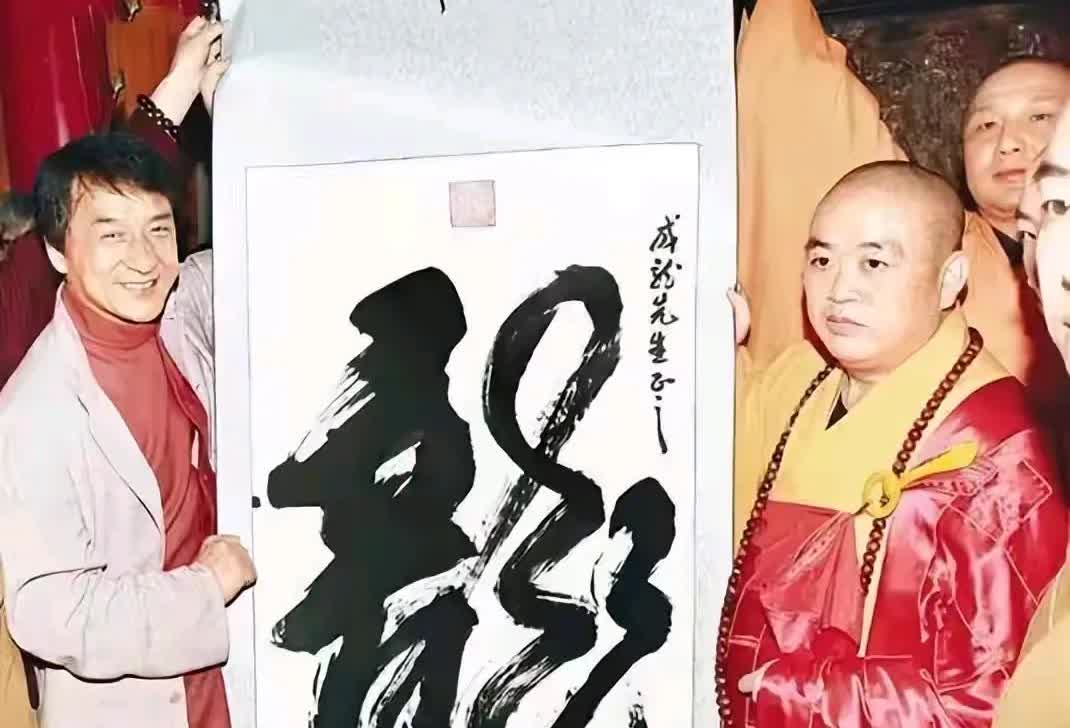 成龍先生正之
龍